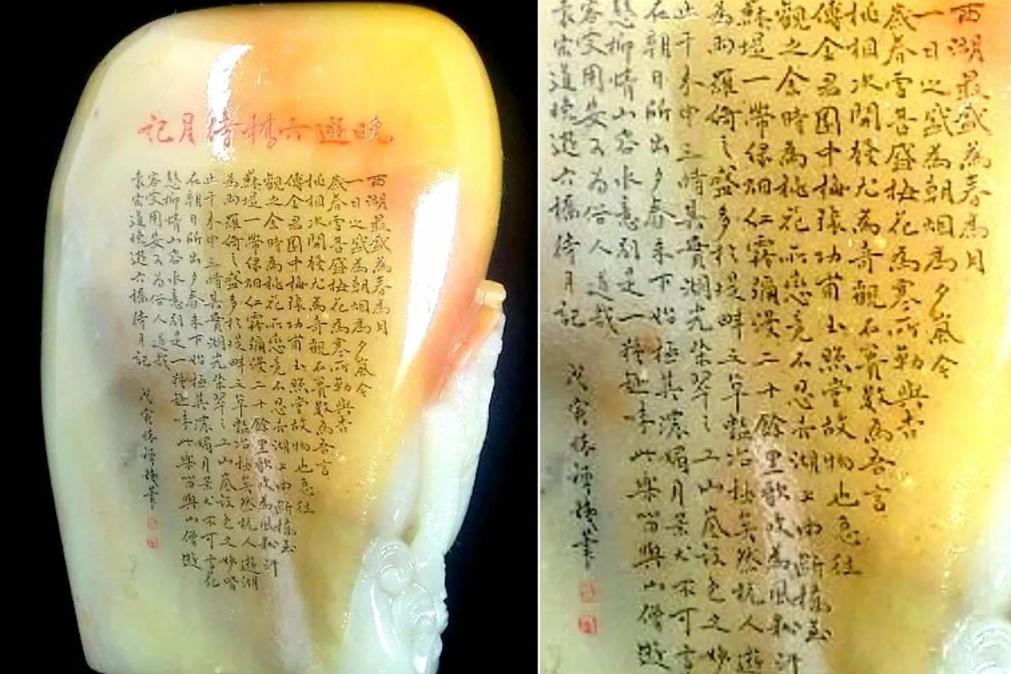 晚遊六橋待月記
西湖最盛為春為月
一日之盛為朝烟為夕嵐今
歲春雪甚盛梅花為寒所勒與杏
桃相次開發尤為奇觀石簣數為吾言
傅金君園中梅張功甫玉照堂故物也急往
觀之余時為桃花所戀竟不忍去湖上由斷橋至
蘇堤一帶綠烟仁霧彌漫二十餘里歌吹為風粉汗
為雨羅綺之盛多於堤畔之草豔冶極矣然杭人遊湖
止午未申三時其實湖光染翠之工山嵐設色之妙皆
在朝日所出夕春未下始極其濃媚月景尤不可言花
態柳情山容水意別是一種趣味此樂留與山僧遊
客受用安可為俗人道哉
袁宏道晚遊六橋待月記